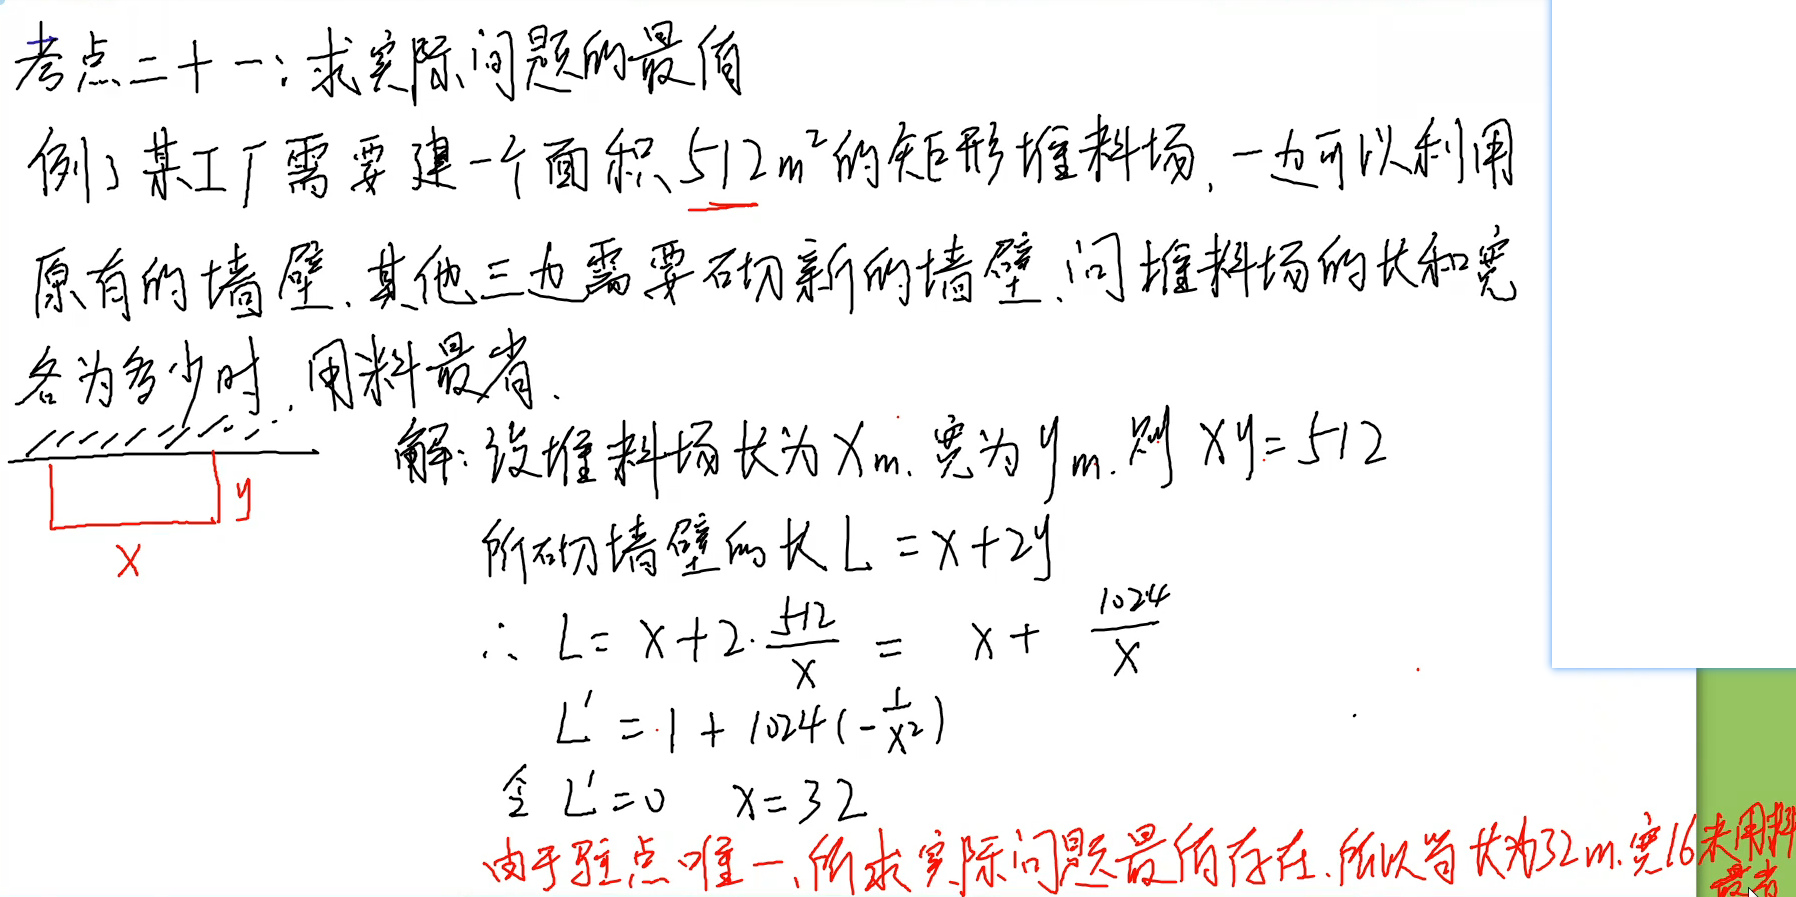 考点二十一：求实际问题的最值
例3 某工厂需要建一个面积512m²的矩形堆料场，一边可以利用
原有的墙壁，其他三边需要砌新的墙壁，问堆料场的长和宽
各为多少时，用料最省．
y
x
解：设堆料场长为xm，宽为ym，则 xy=512
所砌墙壁的长L=x+2y
∴ L= x+2·512/x = x+ 1024/x
L'=1+1024(-1/x²)
令 L'=0 x=32
由于驻点唯一，所求实际问题最值存在，所以当长为32m，宽16米用料
最省